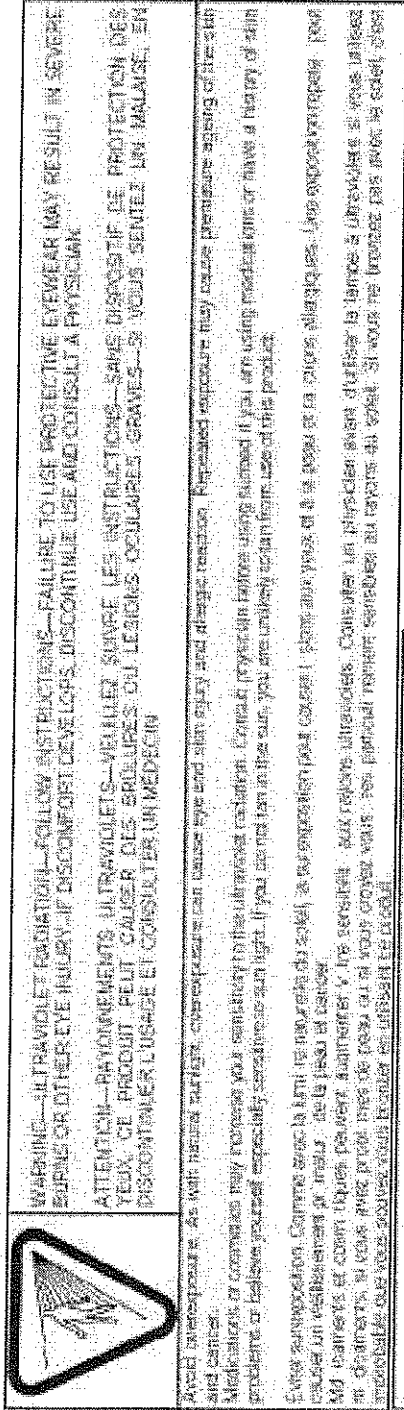 WARNING—ULTRAVIOLET RADIATION—FOLLOW INSTRUCTIONS—FAILURE TO USE PROTECTIVE EYEWEAR MAY RESULT IN SEVERE
BURNS OR OTHER EYE INJURY. IF DISCOMFORT DEVELOPS, DISCONTINUE USE AND CONSULT A PHYSICIAN
ATTENTION—RAYONNEMENTS ULTRAVIOLETS—VEUILLEZ SUIVRE LES INSTRUCTIONS—SANS DISPOSITIF DE PROTECTION DES
YEUX, CE PRODUIT PEUT CAUSER DES BRÛLURES OU LESIONS OCULAIRES GRAVES—SI VOUS SENTEZ UN MALAISE, EN
DISCONTINUER L'USAGE ET CONSULTER UN MEDECIN
Avoid overexposure. As with natural sunlight, overexposure can cause eye and skin injury and allergic reaction. Repeated exposure may cause premature ageing of the skin
and cancer.
Medications or cosmetics may increase your sensitivity to the ultraviolet radiation. Consult physician before using sunbed if you are using medications or have a history of skin
problems or believe yourself especially sensitive to sunlight. If you do not tan in the sun, you are unlikely to tan from use of this product.
Comme avec la du soleil, peut des yeux et de la peau et allergiques. Une exposition
de la peau et cancer.
et peuvent augmenter aux rayons ultraviolets. Consulter un avant d'utiliser la lampe à ultraviolets si vous utilisez
si vous avez de peau ou si vous croyez sensibles au rayons du soleil. Si vous ne bronzez pas avec le soleil, c'est
improbable que vous bronzer en utilisant ce produit.